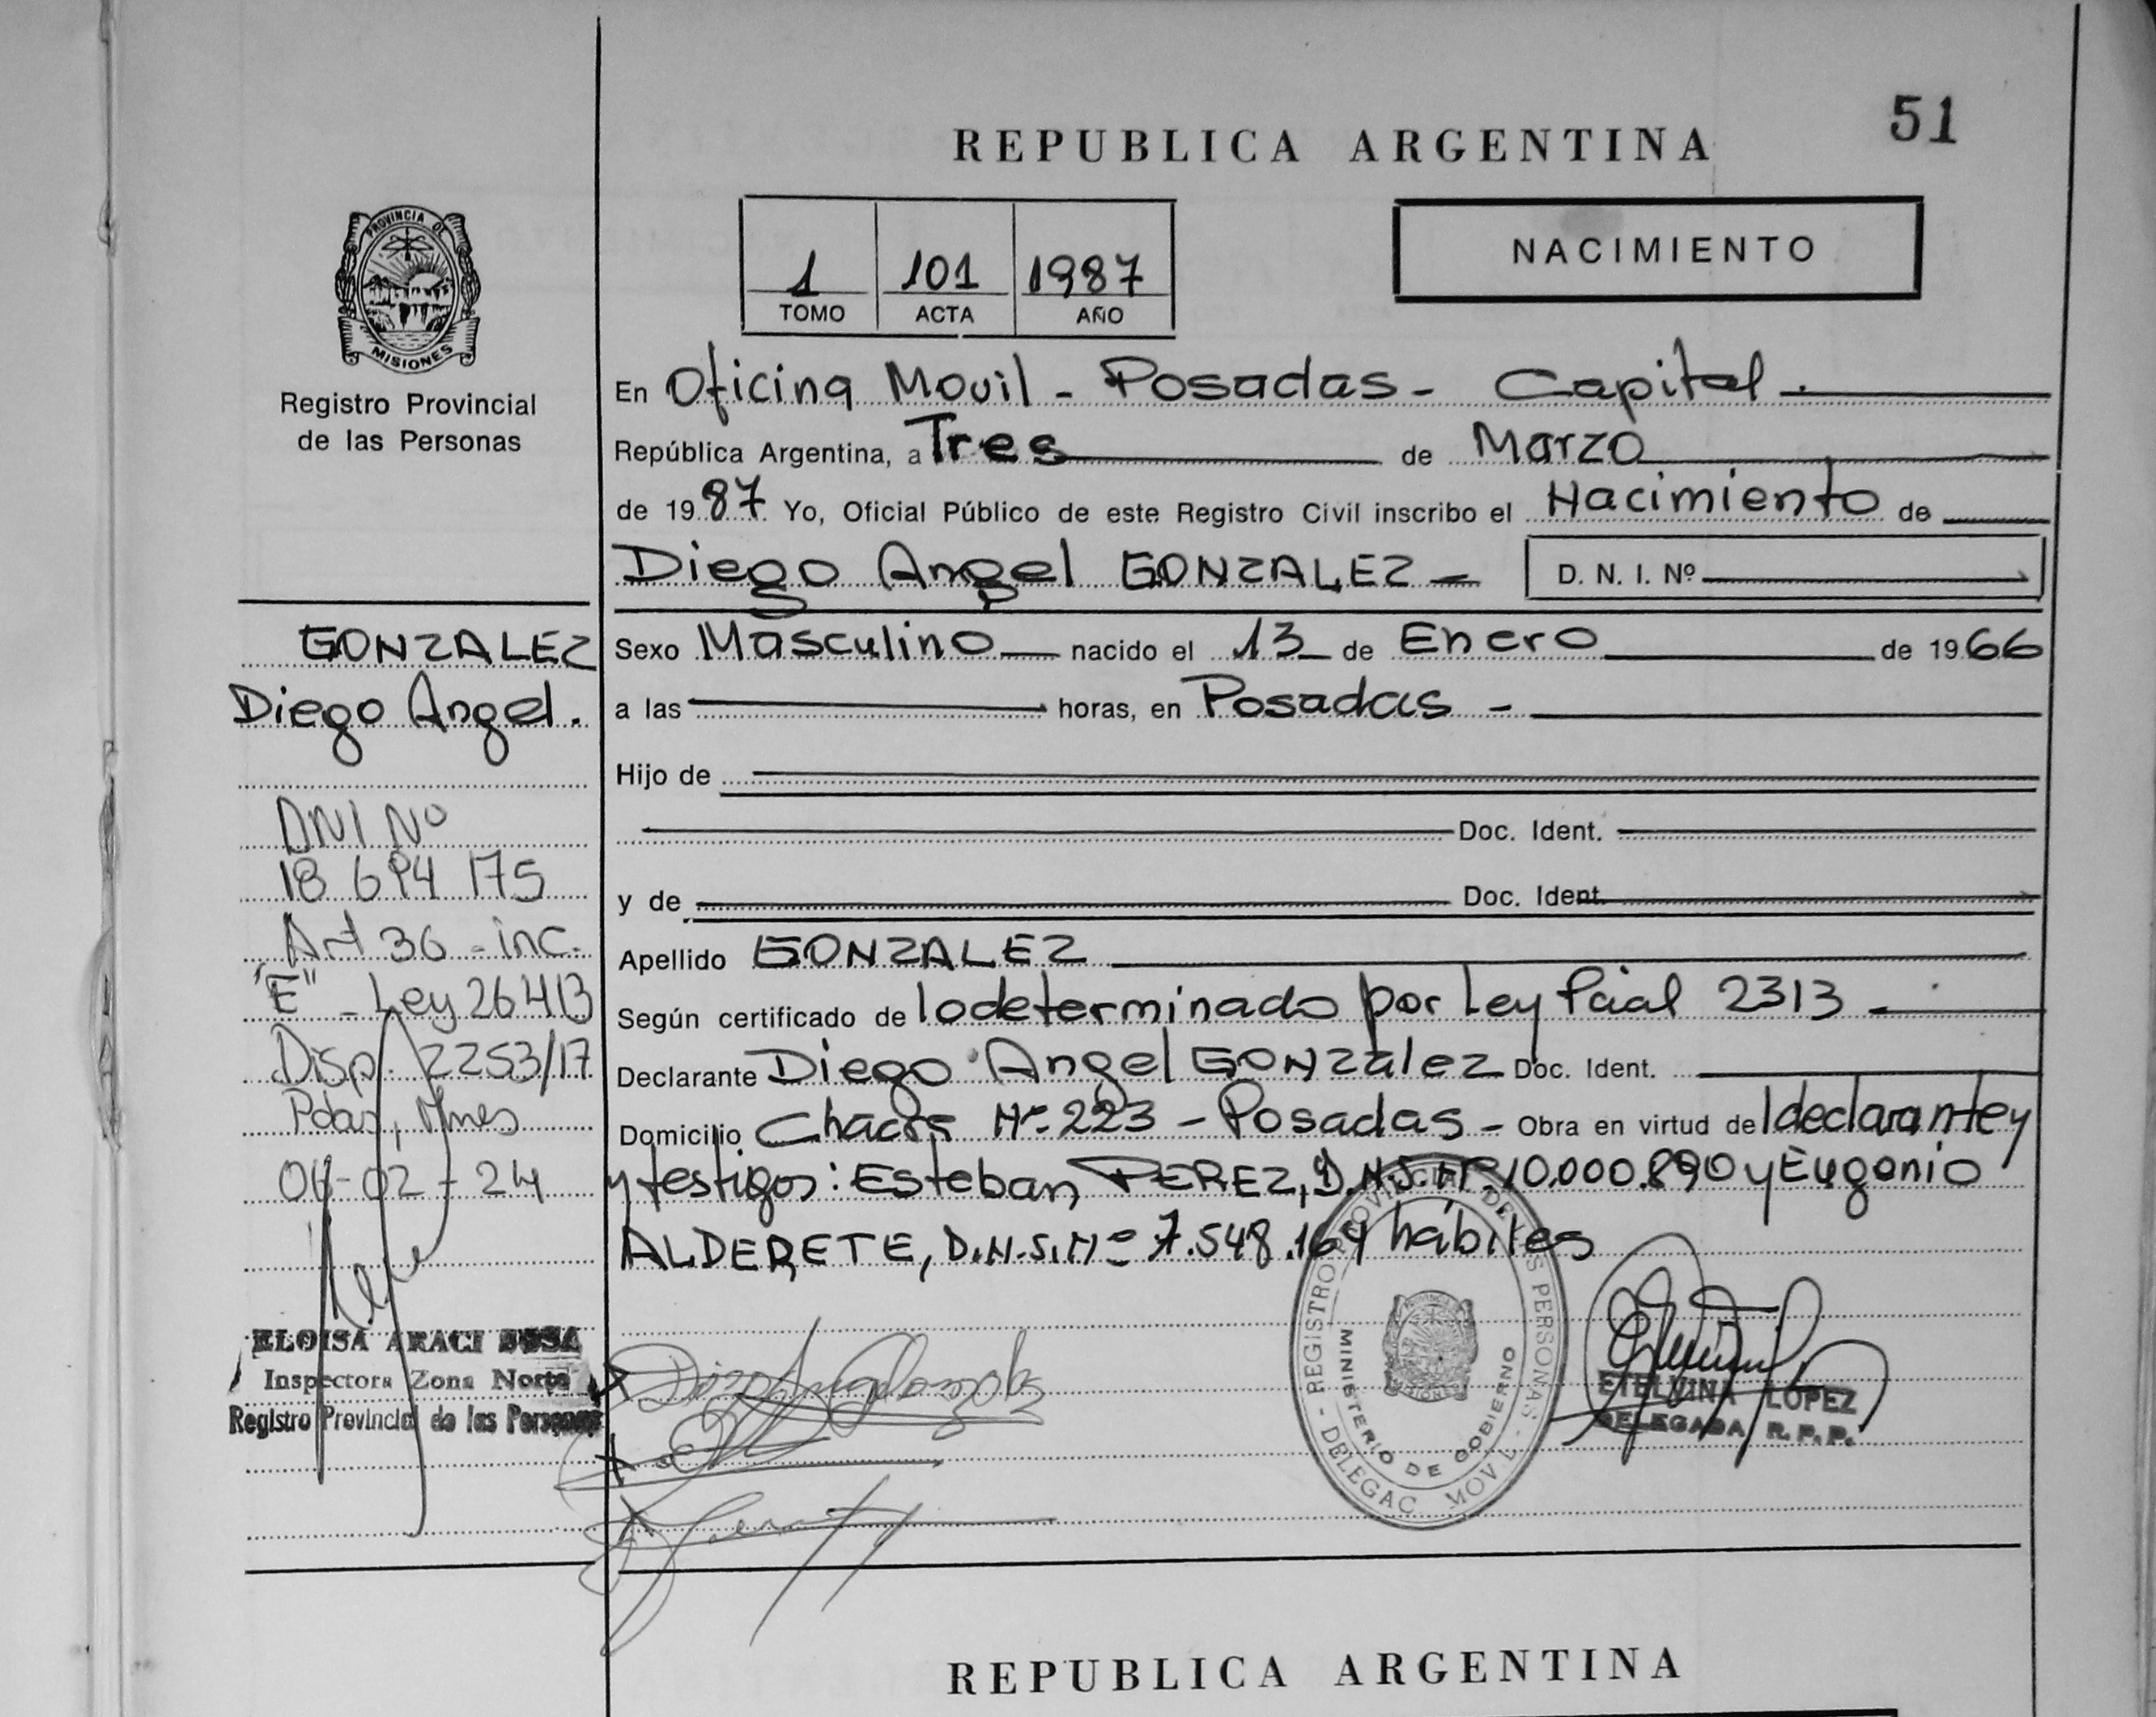 51
REPUBLICA ARGENTINA
NACIMIENTO
1 101 1987
TOMO ACTA AÑO
PROVINCIA DE
MISIONES
Registro Provincial
de las Personas
En Oficina Movil - Posadas - Capital.
República Argentina, a Tres de Marzo
de 1987 Yo, Oficial Público de este Registro Civil inscribo el Nacimiento de
Diego Angel GONZALEZ - D. N. I. Nº
Sexo Masculino nacido el 13 de Enero de 1966
a las horas, en Posadas -
Hijo de
Doc. Ident.
y de Doc. Ident.
Apellido GONZALEZ
Según certificado de lo determinado por Ley Pcial 2313 -
Declarante Diego Angel GONZalez Doc. Ident.
Domicilio Chacra Nº 223 - Posadas - Obra en virtud del declarante y
y testigos: Esteban PEREZ, D.N.I. Nº 10.000.890 y Eugenio
ALDERETE, D.N.I. Nº 7.548.164 hábiles
GONZALEZ
Diego Angel.
DNI Nº
18 694 175
Art 36 - inc.
"E" - Ley 26413
Disp. 2253/17
Pdas, Mnes
-02-24
ELOISA ARACI
Inspectora Zona Norte
Registro Provincial de las Personas
REGISTRO PROVINCIAL DE LAS PERSONAS - DELEGAC. MOVIL -
MINISTERIO DE GOBIERNO
ETELVINA LOPEZ
DELEGADA R. P. P.
REPUBLICA ARGENTINA